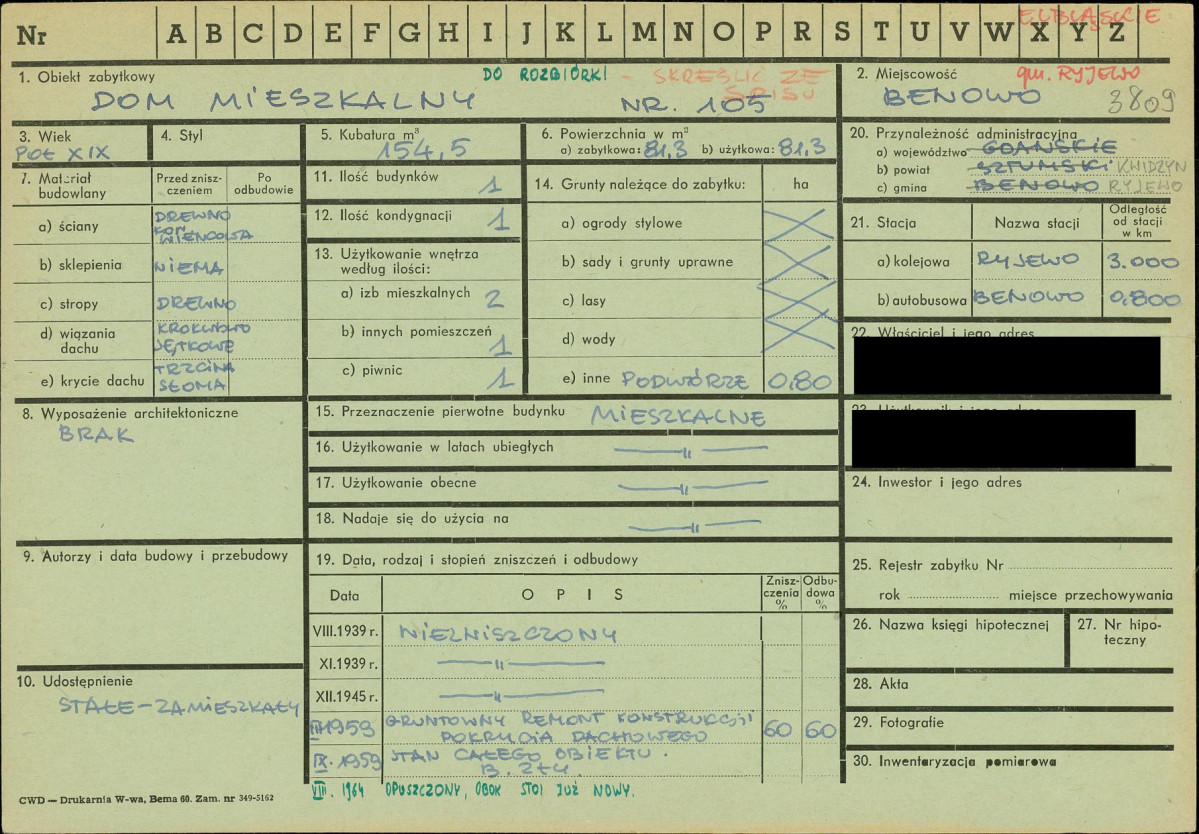 ELBLĄSKIE
Nr A B C D E F G H I J K L M N O P R S T U V W X Y Z
DO ROZBIÓRKI – SKREŚLIĆ ZE SPISU
gm. RYJEWO
1. Obiekt zabytkowy
DOM MIESZKALNY NR. 105
2. Miejscowość
BENOWO 3809
3. Wiek
POŁ XIX
4. Styl
5. Kubatura m³
154,5
6. Powierzchnia w m²
a) zabytkowa: 81,3 b) użytkowa: 81,3
20. Przynależność administracyjna
a) województwo GDAŃSKIE
b) powiat SZTUMSKI KWIDZYN
c) gmina BENOWO RYJEWO
7. Materiał budowlany
Przed zniszczeniem
Po odbudowie
a) ściany DREWNO KON WIEŃCOWA
b) sklepienia NIEMA
c) stropy DREWNO
d) wiązania dachu KROKWIOWO JĘTKOWE
e) krycie dachu TRZCINA SŁOMA
11. Ilość budynków 1
12. Ilość kondygnacji 1
13. Użytkowanie wnętrza według ilości:
a) izb mieszkalnych 2
b) innych pomieszczeń 1
c) piwnic 1
14. Grunty należące do zabytku: ha
a) ogrody stylowe
b) sady i grunty uprawne
c) lasy
d) wody
e) inne PODWÓRZE 0,80
21. Stacja
Nazwa stacji
Odległość od stacji w km
a) kolejowa RYJEWO 3.000
b) autobusowa BENOWO 0.800
22. Właściciel i jego adres
23. Użytkownik i jego adres
8. Wyposażenie architektoniczne
BRAK
15. Przeznaczenie pierwotne budynku MIESZKALNE
16. Użytkowanie w latach ubiegłych —"—
17. Użytkowanie obecne —"—
18. Nadaje się do użycia na —"—
24. Inwestor i jego adres
9. Autorzy i data budowy i przebudowy
19. Data, rodzaj i stopień zniszczeń i odbudowy
Data OPIS Zniszczenia % Odbudowa %
VIII.1939 r. NIEZNISZCZONY
XI.1939 r. —"—
XII.1945 r. —"—
III 1959 GRUNTOWNY REMONT KONSTRUKCJI POKRYCIA DACHOWEGO 60 60
IX. 1959 STAN CAŁEGO OBIEKTU. B. ZŁY.
VIII. 1964 OPUSZCZONY, OBOK STOI JUŻ NOWY.
25. Rejestr zabytku Nr
rok miejsce przechowywania
26. Nazwa księgi hipotecznej
27. Nr hipoteczny
10. Udostępnienie
STAŁE – ZAMIESZKAŁY
28. Akta
29. Fotografie
30. Inwentaryzacja pomiarowa
CWD — Drukarnia W-wa, Bema 60. Zam. nr 349-5162